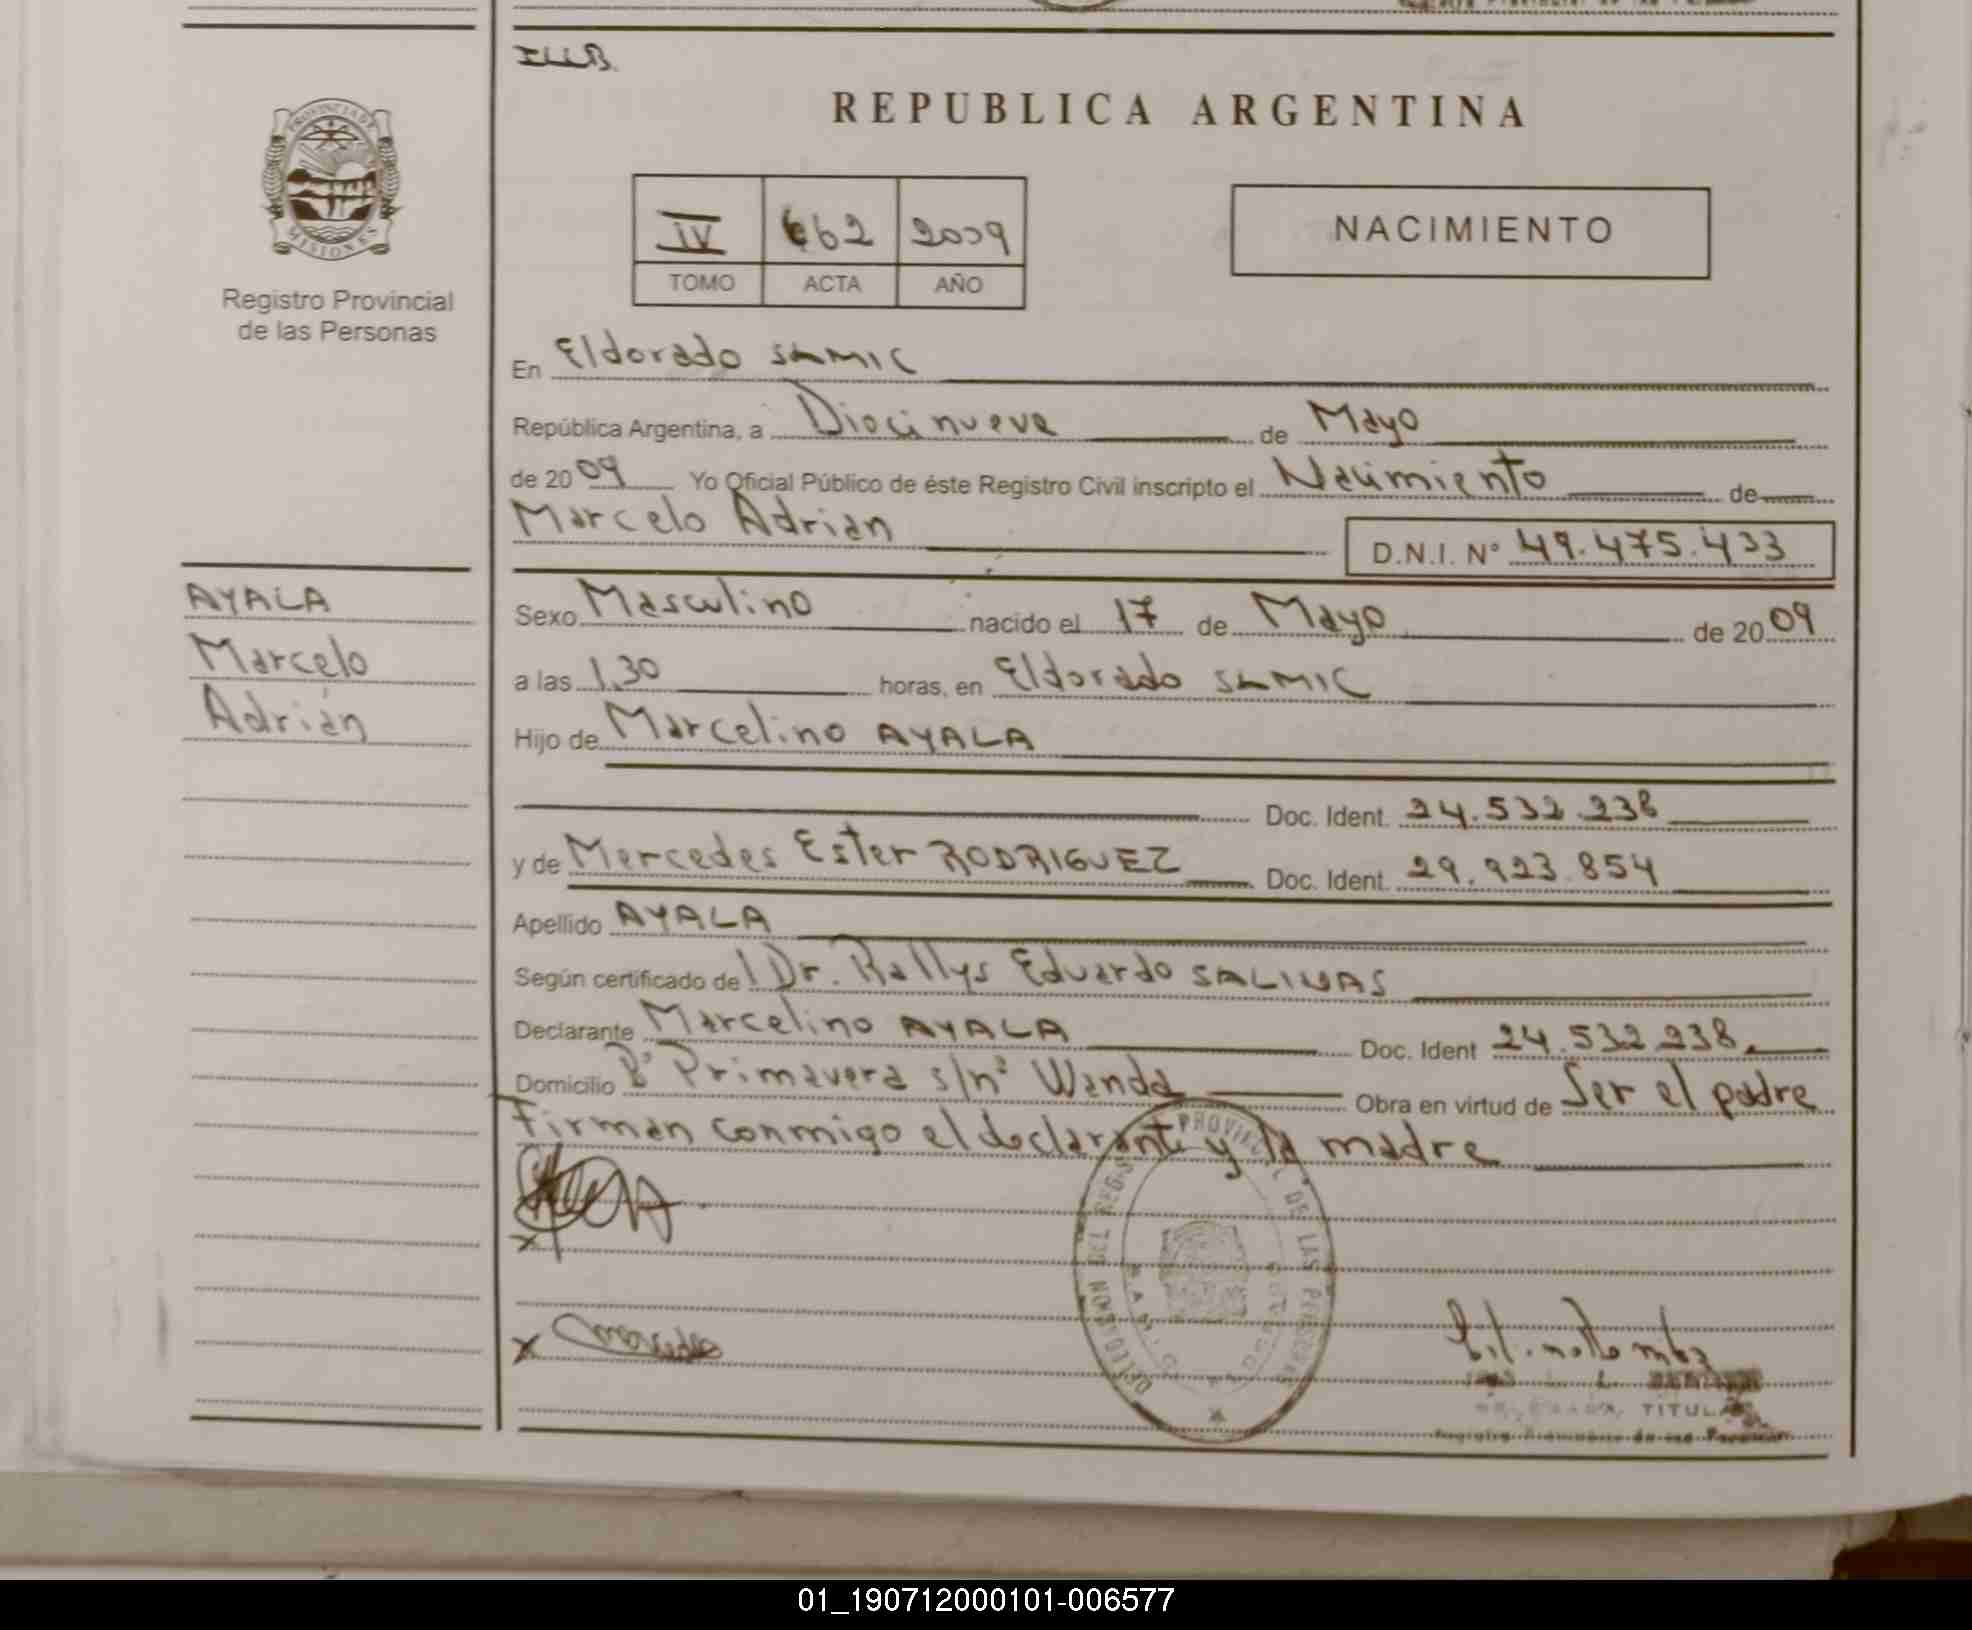 REPUBLICA ARGENTINA
PROVINCIA DE MISIONES
Registro Provincial
de las Personas
IV 662 2009
TOMO ACTA AÑO
NACIMIENTO
En Eldorado SAMIC
República Argentina, a Diecinueve de Mayo
de 2009 Yo Oficial Público de éste Registro Civil inscripto el Nacimiento de
Marcelo Adrián D.N.I. N° 49.475.433
AYALA
Marcelo
Adrián
Sexo Masculino nacido el 17 de Mayo de 2009
a las 1,30 horas, en Eldorado SAMIC
Hijo de Marcelino AYALA
Doc. Ident. 24.532.238
y de Mercedes Ester RODRIGUEZ Doc. Ident. 29.923.854
Apellido AYALA
Según certificado de Dr. Rallys Eduardo SALINAS
Declarante Marcelino AYALA Doc. Ident 24.532.238.
Domicilio B° Primavera s/n° Wanda Obra en virtud de Ser el padre
Firman conmigo el declarante y la madre
x
x Mercedes
PROVINCIAL DE LAS PERSONAS
DELEGACION DEL REGISTRO
TITULAR
01_190712000101-006577